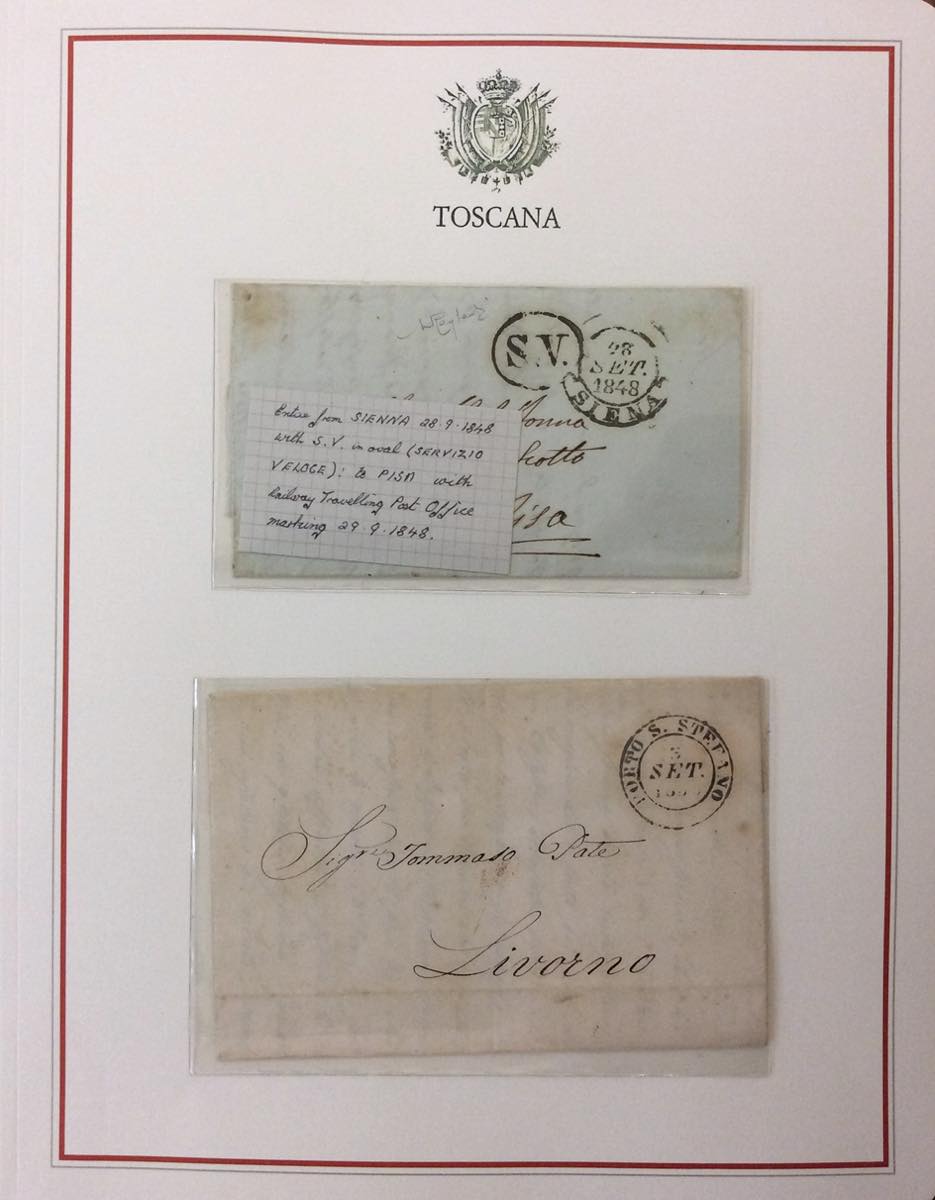 TOSCANA
S.V.
28
SET.
1848
SIENA
Entire from SIENNA 28.9.1848
with S.V. in oval (SERVIZIO
VELOCE): to PISA with
Railway Travelling Post Office
marking 29.9.1848.
PORTO S. STEFANO
SET.
Sigre Tommaso Pate
Livorno